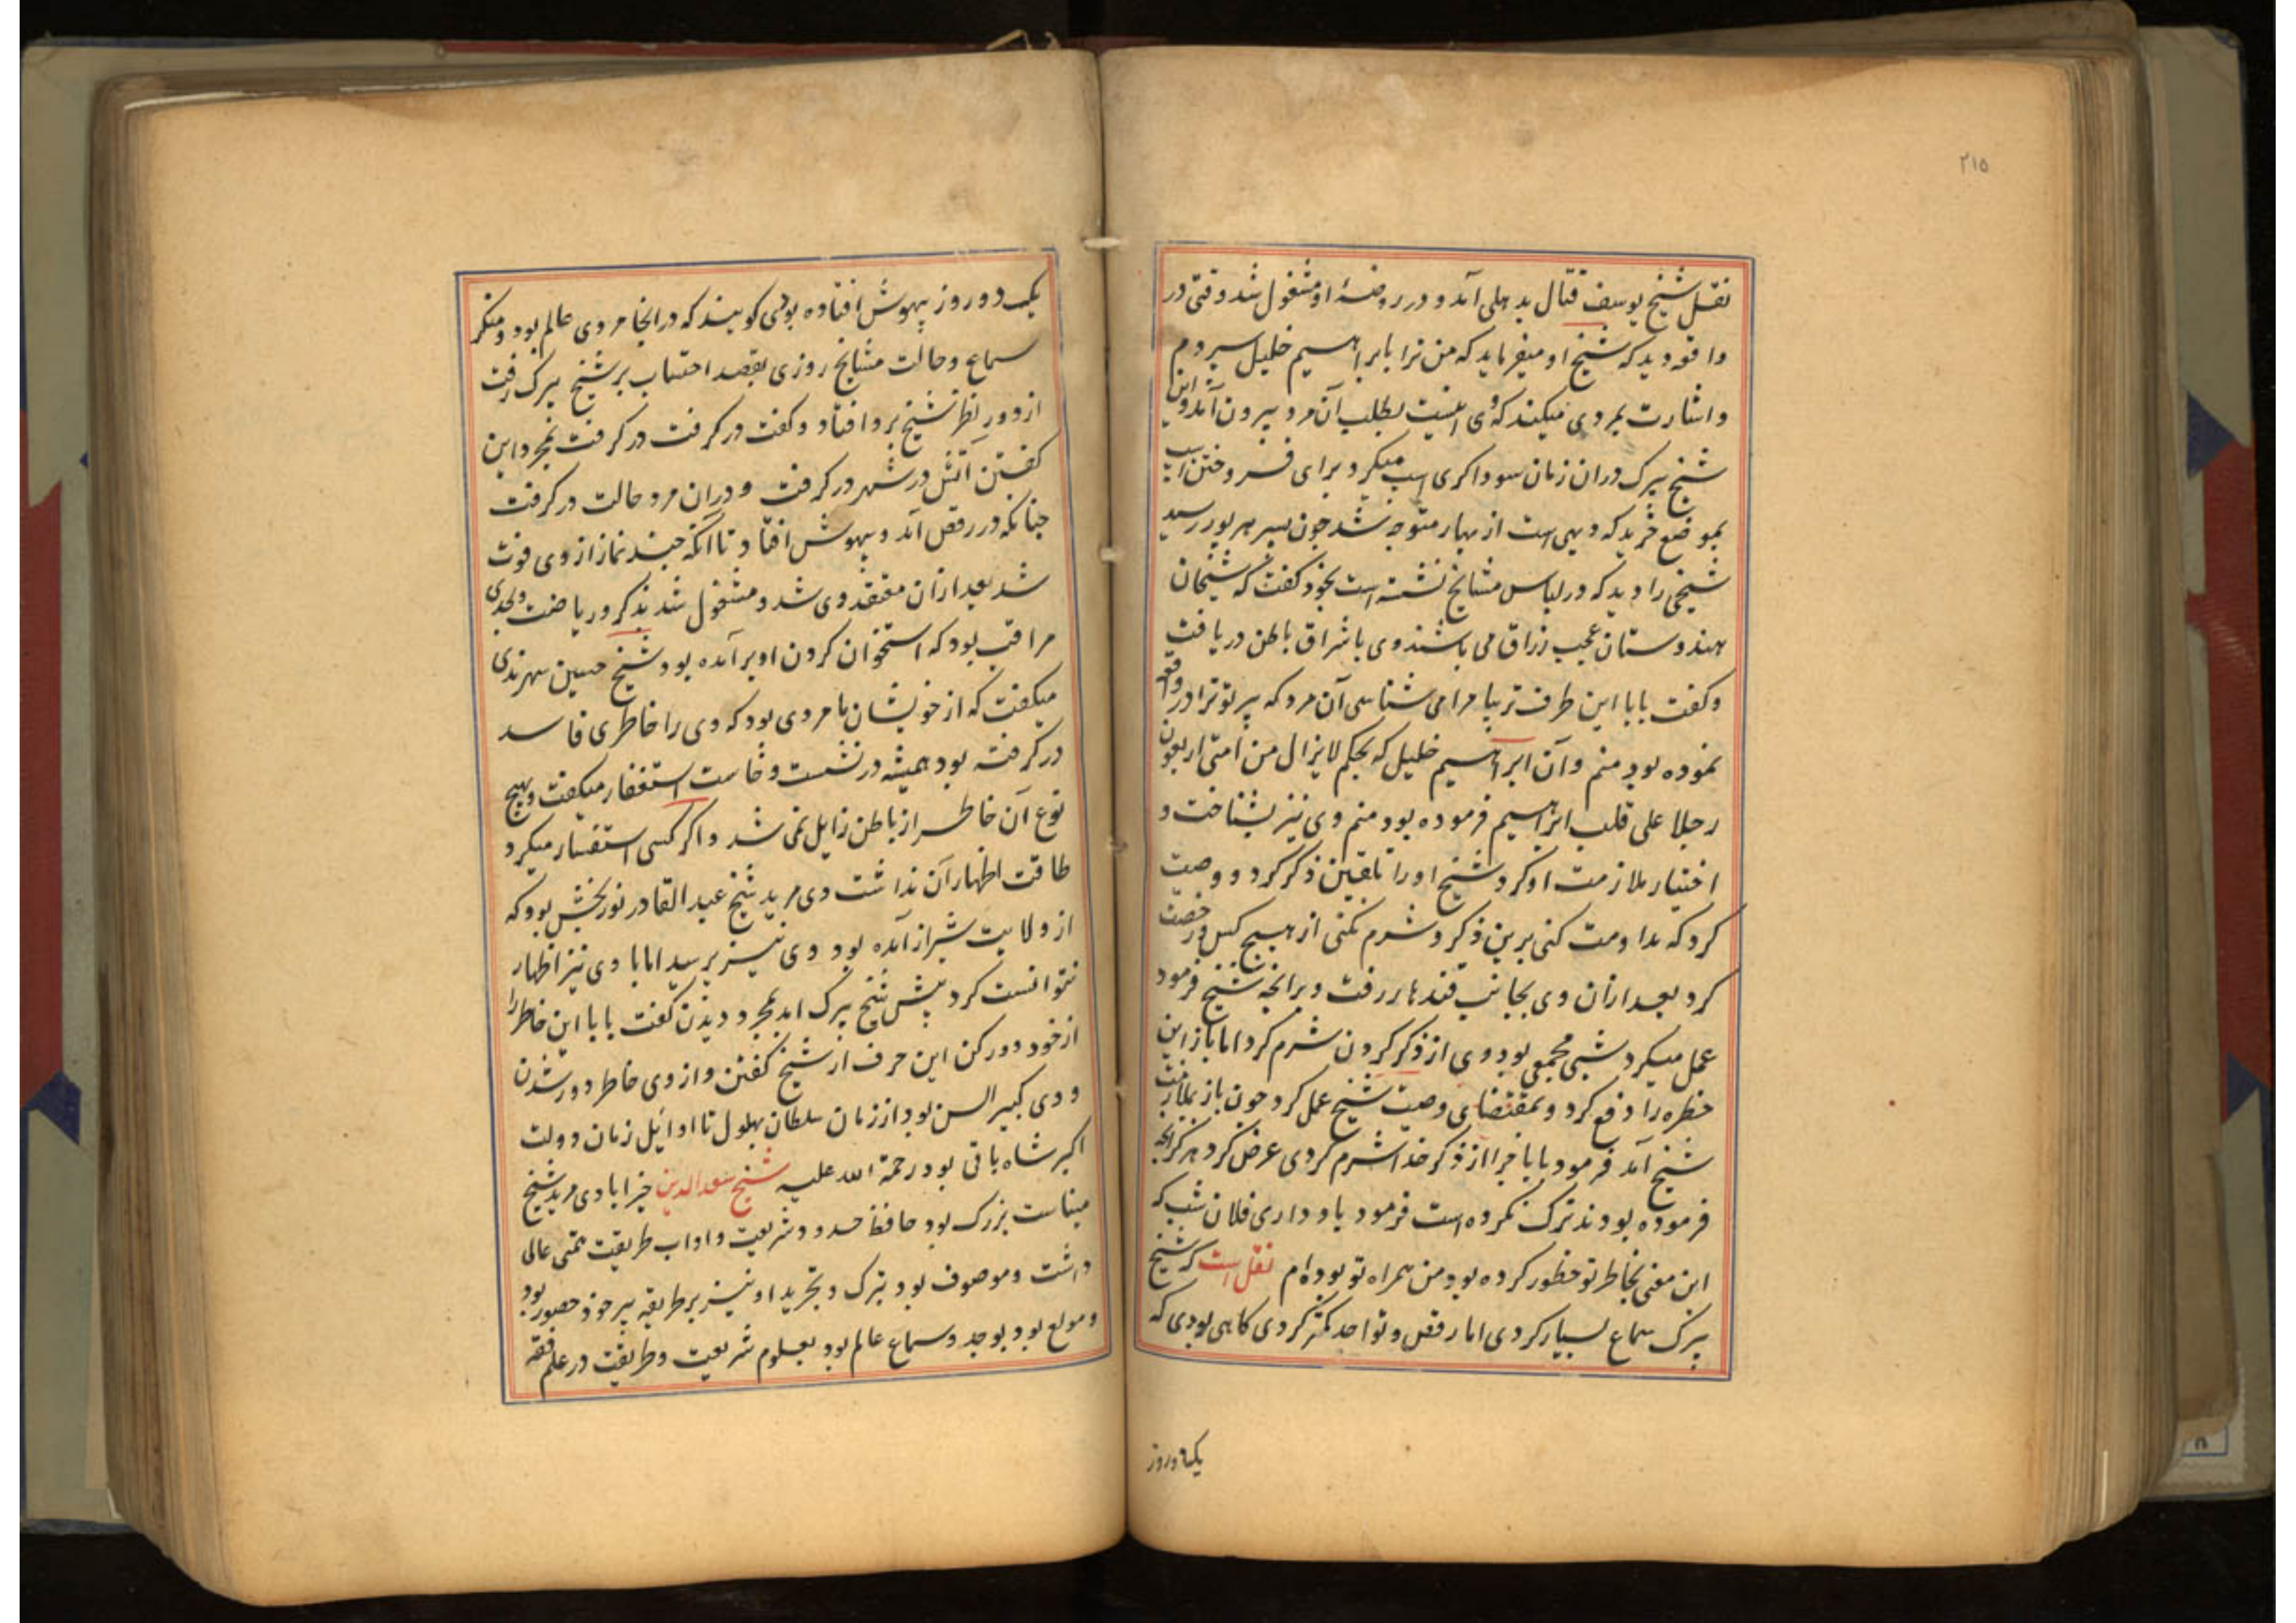 ۲۱۵
نقل شیخ یوسف قتال بدهلی آمد و در روضهٔ او مشغول شد وقتی در
واقعه دید که شیخ او میفرماید که من ترا بابراهیم خلیل سپردم
و اشارت بمردی میکند که وی اینست بطلب آن مرد بیرون آمد و این
شیخ بیرک دران زمان سوداکری اسپ میکرد برای فروختن اسپ
بموضع که دیهی است از بهار متوجه شد چون بسر هرپور رسید
شیخی را دید که در لباس مشایخ نشسته است بخود کفت که شیخان
هندوستان عجب زراق می باشند وی باشراق باطن دریافت
و کفت بابا این طرف تر بیا مرا می شناسی آن مرد که پیر تو ترا در واقعه
نموده بود منم و آن ابراهیم خلیل که بحکم لایزال من امتی اربعون
رجلا علی قلب ابراهیم فرموده بود منم وی نیز بشناخت و
اختیار ملازمت او کرد شیخ او را تلقین ذکر کرد و وصیت
کرد که مداومت کنی برین ذکر و شرم نکنی از هیچ کس و رخصت
کرد بعد ازان وی بجانب قندهار رفت و برانچه شیخ فرمود
عمل میکرد شبی مجمعی بود وی از ذکر کردن شرم کرد اما باز این
خطره را دفع کرد و بمقتضای وصیت شیخ عمل کرد چون باز بملازمت
شیخ آمد فرمود بابا چرا از ذکر خدا شرم کردی عرض کرد هرکز انچه
فرموده بودند ترک نکرده است فرمود یاد داری فلان شب که
این معنی بخاطر تو خطور کرده بود من همراه تو بوده ام نقل است که شیخ
بیرک سماع بسیار کردی اما رقص و تواجد کمتر کردی کاهی بودی که
یک دو روز
یک دو روز بیهوش افتاده بودی کویند که در انجا مردی عالم بود و منکر
سماع و حالت مشایخ روزی بقصد احتساب بر شیخ بیرک رفت
از دور نظر شیخ برو افتاد و کفت در کرفت در کرفت بمجرد این
کفتن آتش در شهر در کرفت و دران مرد حالت در کرفت
چنانکه در رقص آمد و بیهوش افتاد تا آنکه چند نماز از وی فوت
شد بعد ازان معتقد وی شد و مشغول شد بذکر و ریاضت و بحدی
مراقب بود که استخوان کردن او برآمده بود شیخ حسین سهرندی
میکفت که از خویشان ما مردی بود که وی را خاطری فاسد
در کرفته بود همیشه در نشست و خاست استغفار میکفت و بهیچ
نوع آن خاطر از باطن زایل نمی شد و اکر کسی استفسار میکرد
طاقت اظهار آن نداشت وی مرید شیخ عبد القادر نوربخش بود که
از ولایت شیراز آمده بود وی نیز پرسید اما با وی نیز اظهار
نتوانست کرد پیش شیخ بیرک امد بمجرد دیدن کفت بابا این خاطر را
از خود دور کن این حرف از شیخ کفتن و از وی خاطر دور شدن
و وی کبیر السن بود از زمان سلطان بهلول تا اوایل زمان دولت
اکبر شاه باقی بود رحمة الله علیه شیخ سعد الدین خیرابادی مرید شیخ
میناست بزرک بود حافظ حدود شریعت و اداب طریقت همتی عالی
داشت و موصوف بود بترک و تجرید او نیز بر طریقه پیر خود حصور بود
و مولع بود بوجد و سماع عالم بود بعلوم شریعت و طریقت در علم فقه